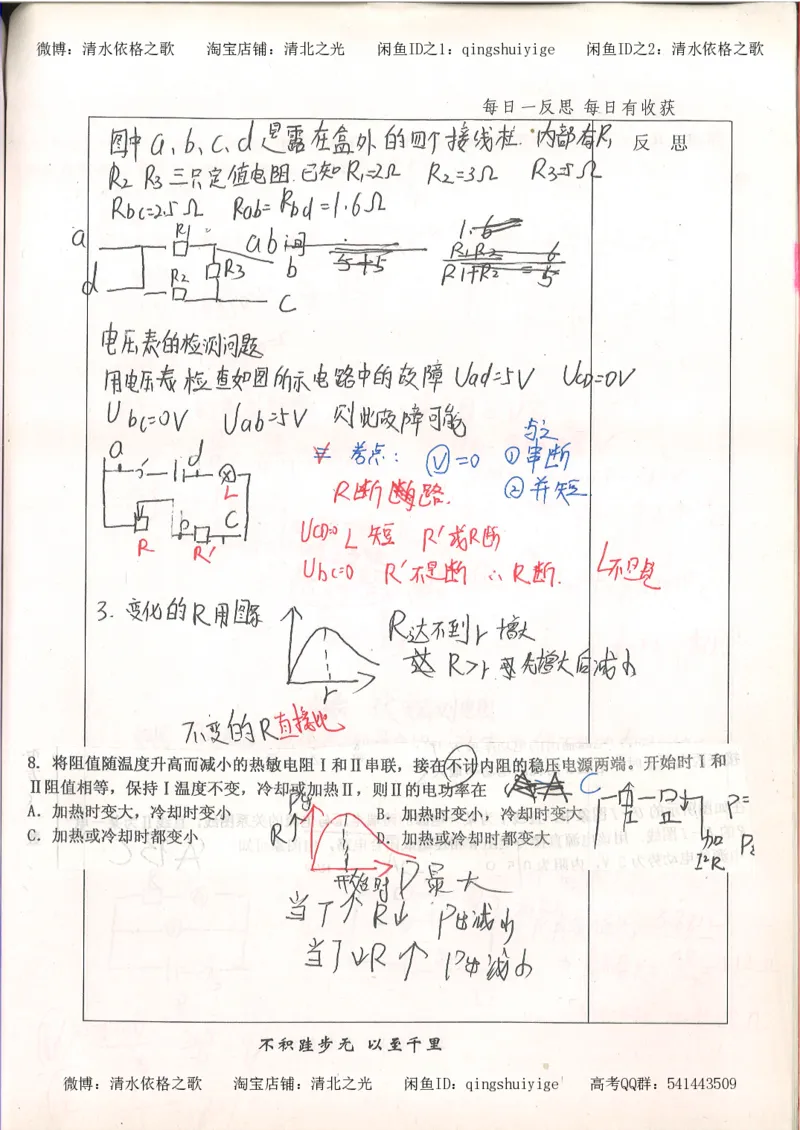 微博：清水依格之歌 淘宝店铺：清北之光 闲鱼ID之1：qingshuiyige 闲鱼ID之2：清水依格之歌
每日一反思 每日有收获
反 思
图中a、b、c、d是露在盒外的四个接线柱.内部有R1
R2 R3三只定值电阻.已知R1=2Ω R2=3Ω R3=5Ω
Rbc=2.5Ω Rab=Rbd=1.6Ω
a R1 ab间 5+5 1.6 R1R2 6
d R2 R3 b R1+R2 = 5
c
电压表的检测问题
用电压表检查如图所示电路中的故障 Uad=5V UCD=0V
Ubc=0V Uab=5V 则此故障可能
与之
a d 考点： V=0 ①串断
L R断 路. ②并短
b C UCD=0 L短 R′或R断
R R′ Ubc=0 R′不是断 ∴R断. L不是
3. 变化的R用图象 R达不到r 增大
R>r 先增大后减小
r
不变的R直接比
8. 将阻值随温度升高而减小的热敏电阻Ⅰ和Ⅱ串联，接在不计内阻的稳压电源两端。开始时Ⅰ和
Ⅱ阻值相等，保持Ⅰ温度不变，冷却或加热Ⅱ，则Ⅱ的电功率在 C
A. 加热时变大，冷却时变小 B. 加热时变小，冷却时变大
C. 加热或冷却时都变小 D. 加热或冷却时都变大
R↑ P= P2
I²R
开始时P最大
当T↑ R↓ P出减小
当T↓R↑ P出减小
不积跬步无 以至千里
微博：清水依格之歌 淘宝店铺：清北之光 闲鱼ID：qingshuiyige 高考QQ群：541443509